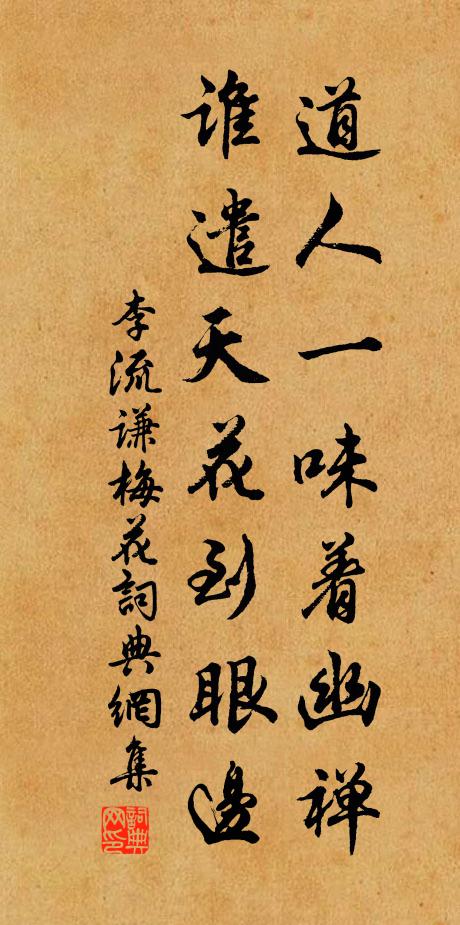 道人一味着幽禅
谁遣天花到眼邊
李流谦梅花詞典網集
詞典网印